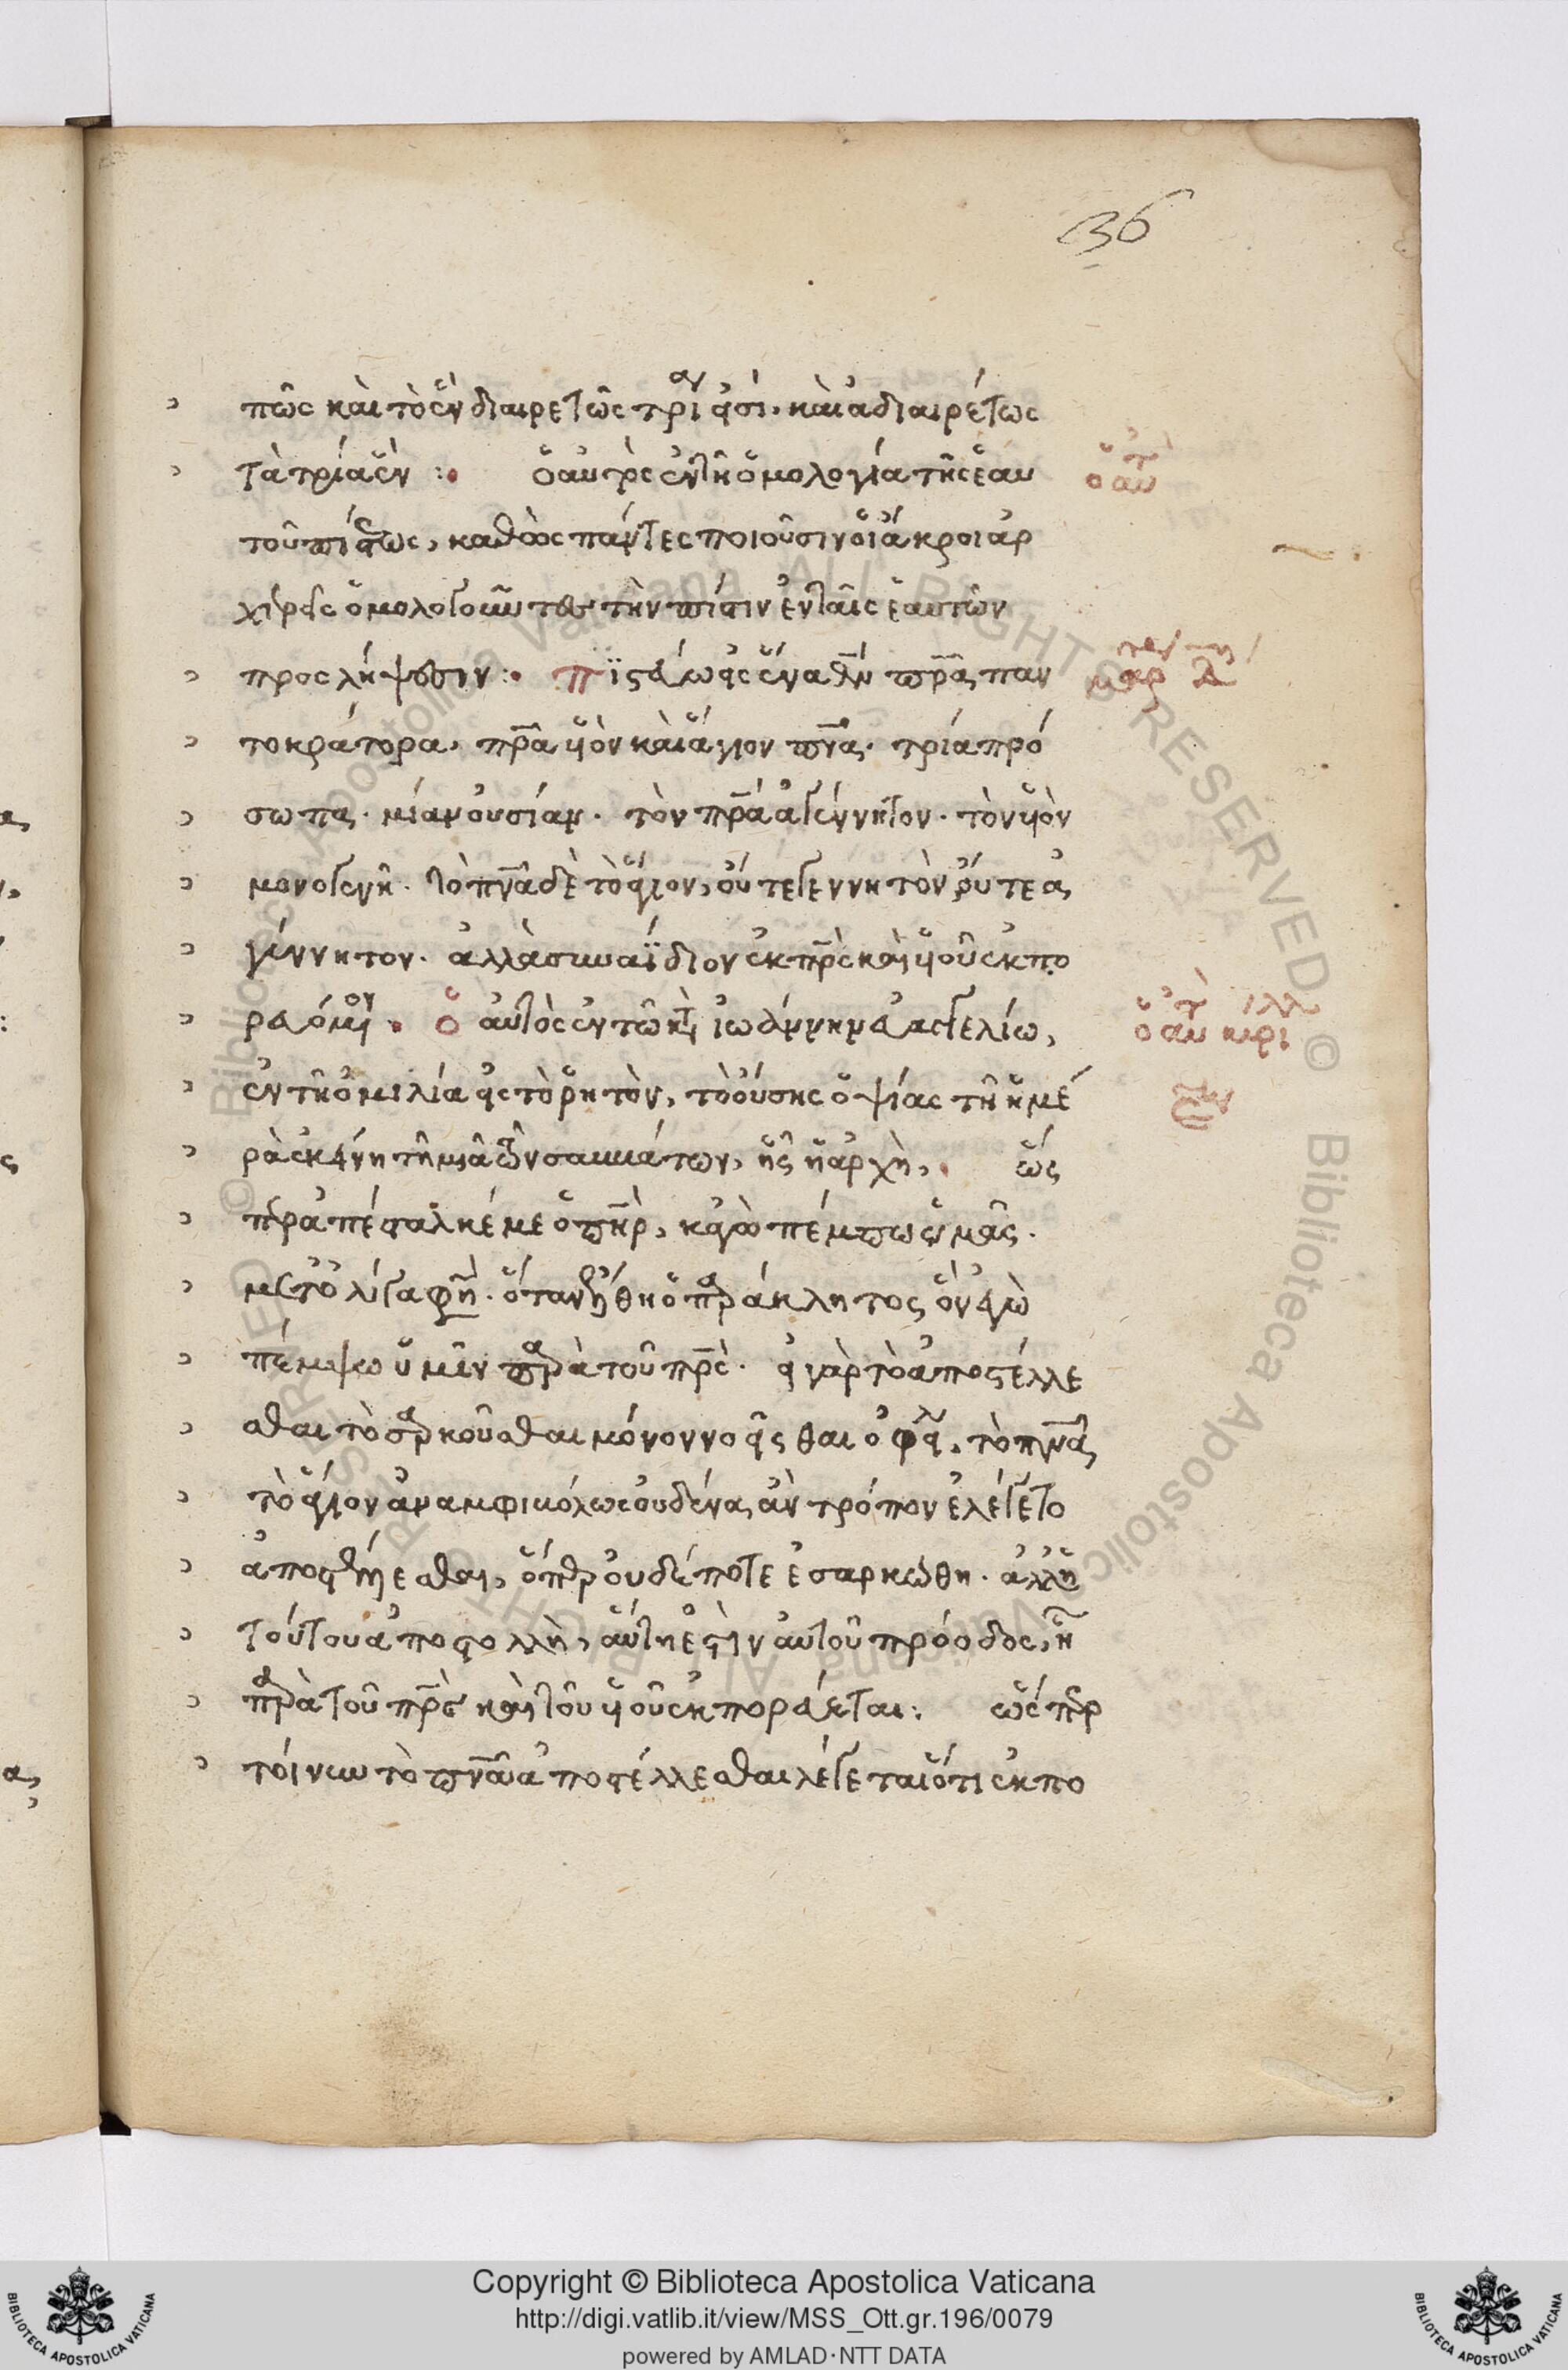 36
πῶς καὶ τὸ ἓν διαιρετῶς τρία εἰσί· καὶ ἀδιαιρέτως
τὰ τρία ἓν :• ὁ αὐτὸς ἐν τῇ ὁμολογία τῆς ἑαυ
ὁ αὐτ
τοῦ πίστεως, καθὼς πάντες ποιοῦσιν οἱ ἄκροι ἀρ
χιερεῖς ὁμολογοῦντες τὴν πίστιν ἐν ταῖς ἑαυτῶν
προσλήψεσιν :• πϊστεύω εἰς ἕνα θν πρα παν
τοκράτορα, πρα υἱὸν καὶ ἅγιον πνα· τρία πρό
σωπα· μίαν οὐσίαν· τὸν πρα ἀγέννητον· τὸν υἱὸν
μονογενῆ· τὸ πνα δὲ τὸ ἅγιον, οὔτε γεννητὸν οὔτε ἀ
γέννητον· ἀλλὰ συναΐδιον ἐκ πρς καὶ υἱοῦ ἐκπο
ρευόμενον • ὁ αὐτὸς ἐν τῶ κατὰ ἰωάννην εὐαγγελίω,
ὁ αὐτ κυρι
ἐν τῇ ὁμιλία εἰς τὸ ῥητὸν, τὸ οὔσης ὀψίας τῇ ἡμέ
ρα ἐκείνη τῇ μιᾶ τῶν σαββάτων, ἧς ἡ ἀρχὴ, • ὥς
περ ἀπέσταλκέ με ὁ πηρ, κἀγὼ πέμπω ὑμᾶς·
μετ' ὀλίγα φησὶν· ὅταν ἔλθη ὁ παράκλητος ὃν ἐγὼ
πέμψω ὑμῖν παρὰ τοῦ πρς· εἰ γὰρ τὸ ἀποστέλλε
σθαι τὸ σαρκοῦσθαι μόνον νοεῖσθαι ὀφείλει, τὸ πνα
τὸ ἅγιον ἀναμφιβόλως οὐδένα ἂν τρόπον ἐλέγετο
ἀποστέλλεσθαι, ὅπερ οὐδέποτε ἐσαρκώθη· ἀλλ' ἡ
τούτου ἀποστολλὴ, αὕτη ἐστὶν αὐτοῦ πρόοδος, ἣ
παρὰ τοῦ πρς καὶ τοῦ υἱοῦ ἐκπορεύεται : ὥσπερ
τοίνυν τὸ πνα ἀποστέλλεσθαι λέγεται ὅτι ἐκπο
Copyright © Biblioteca Apostolica Vaticana
http://digi.vatlib.it/view/MSS_Ott.gr.196/0079
powered by AMLAD·NTT DATA